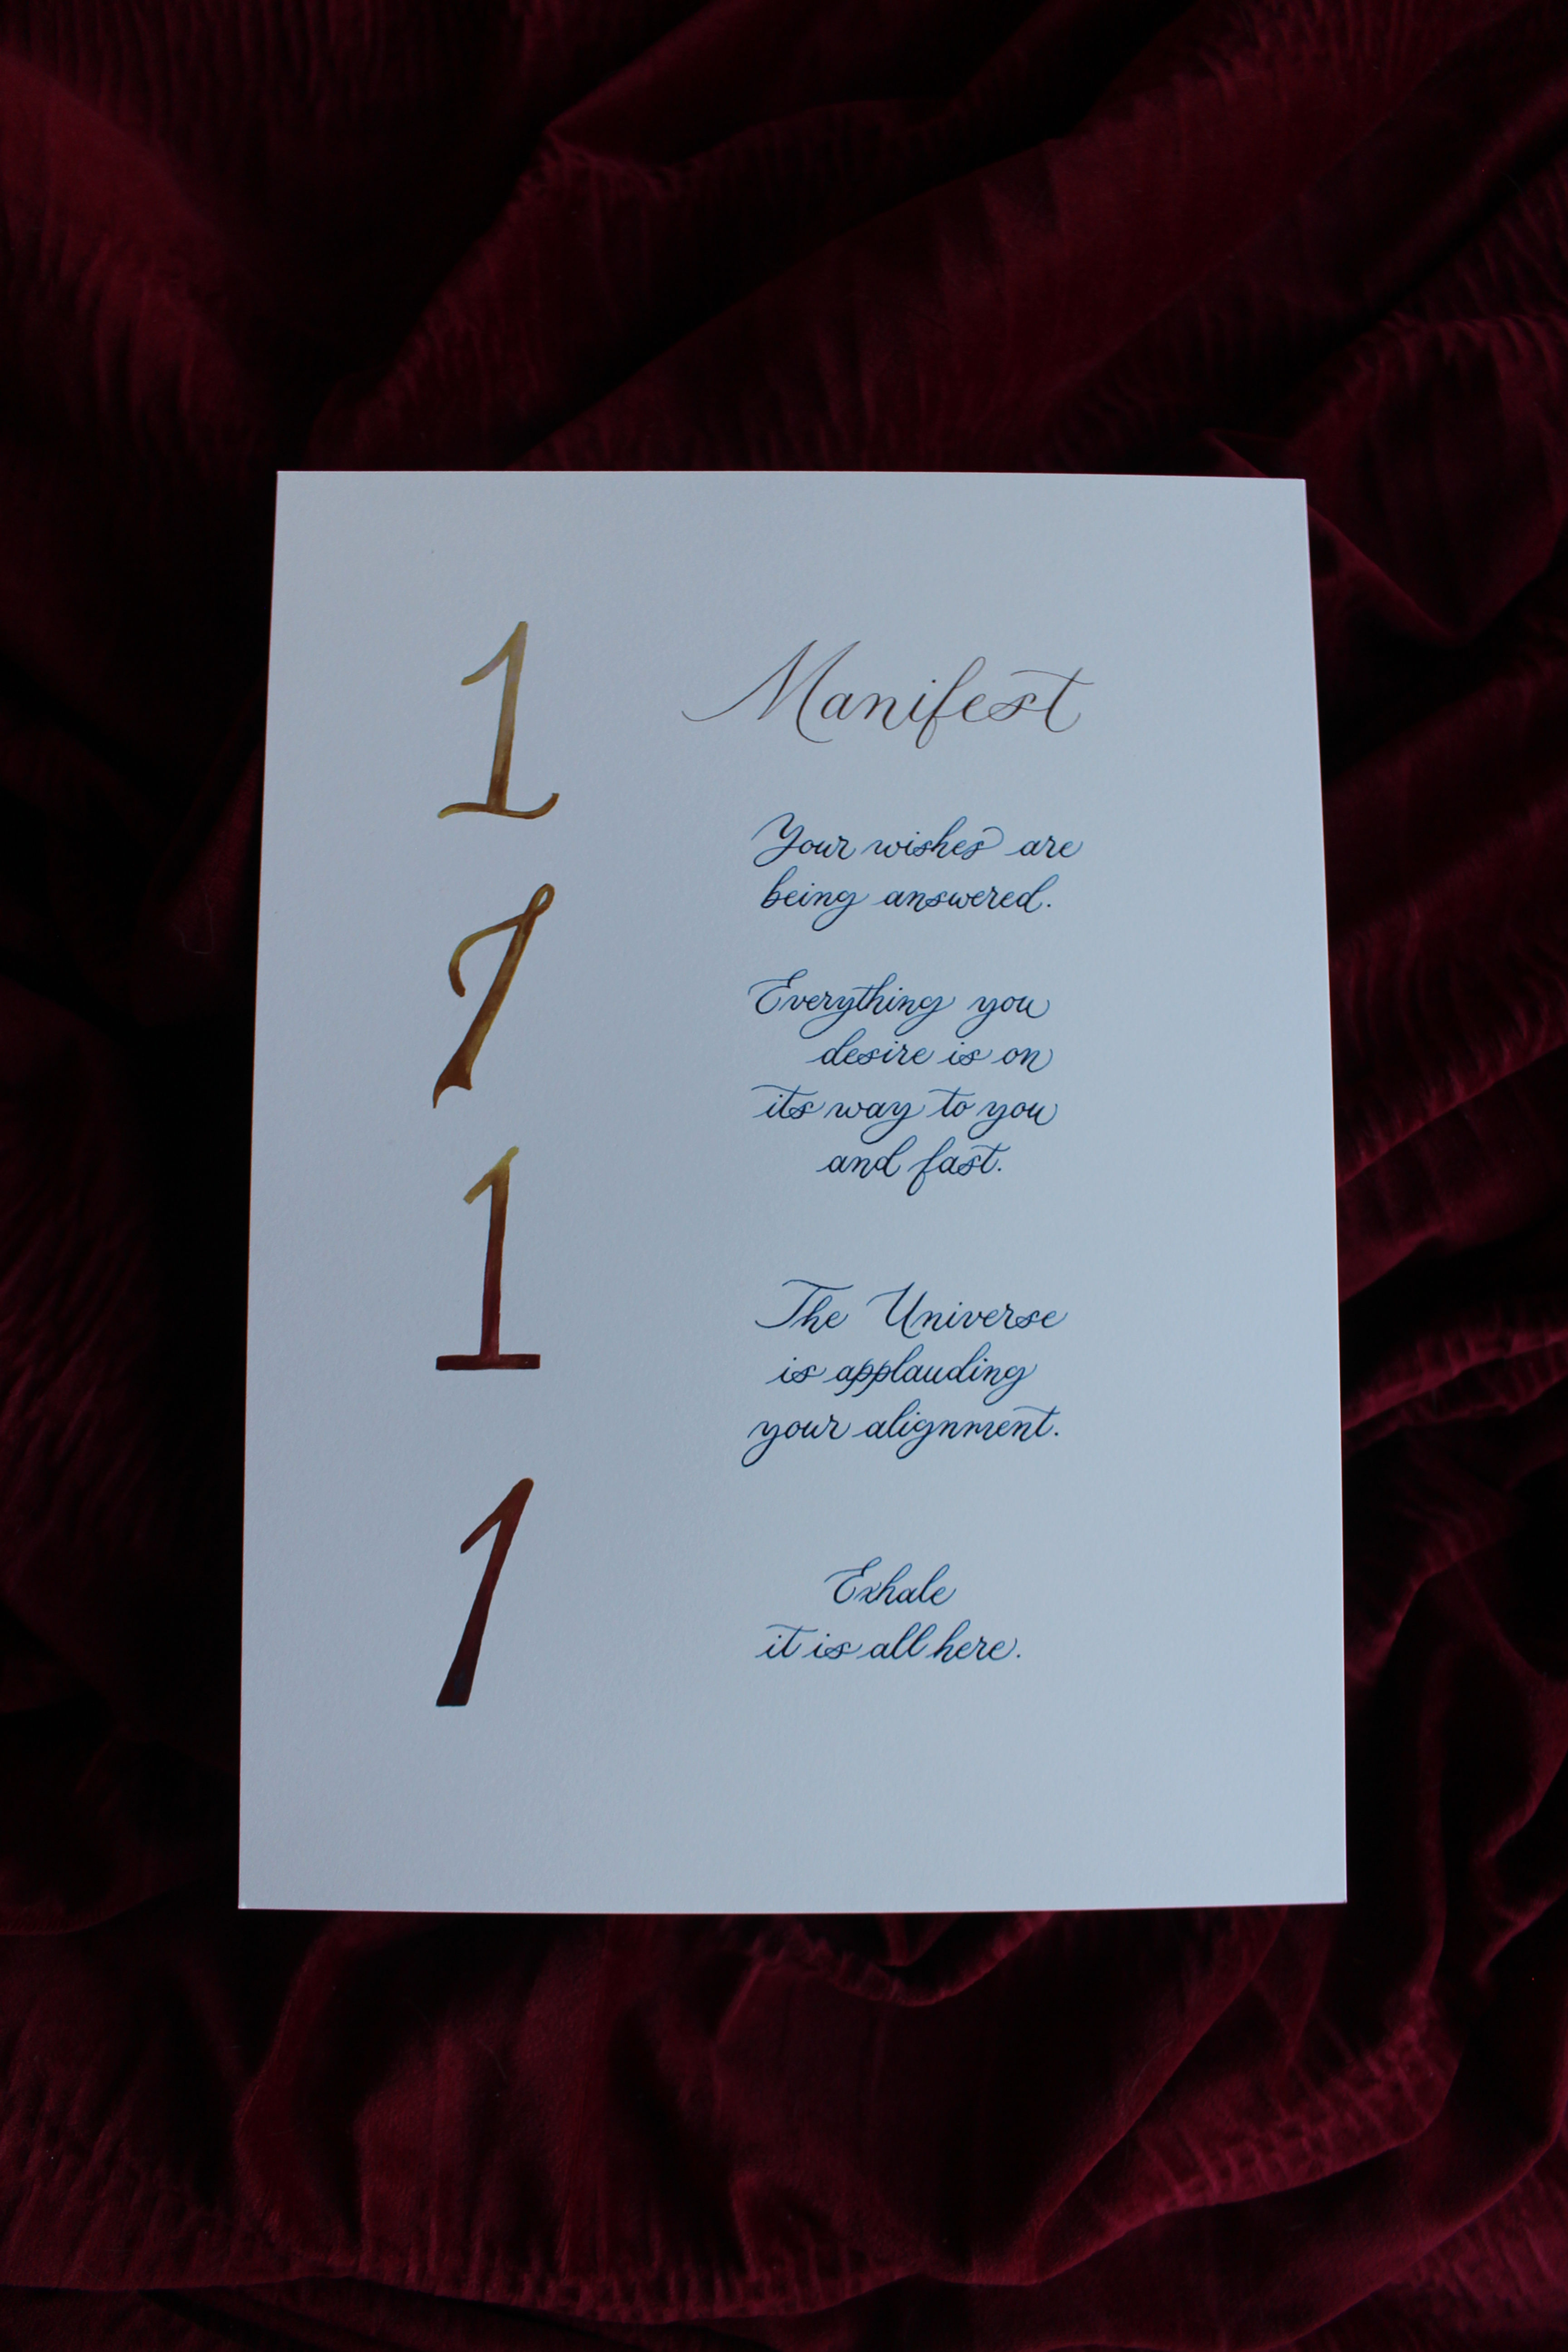 1
1
1
1
Manifest
Your wishes are
being answered.
Everything you
desire is on
its way to you
and fast.
The Universe
is applauding
your alignment.
Exhale
it is all here.